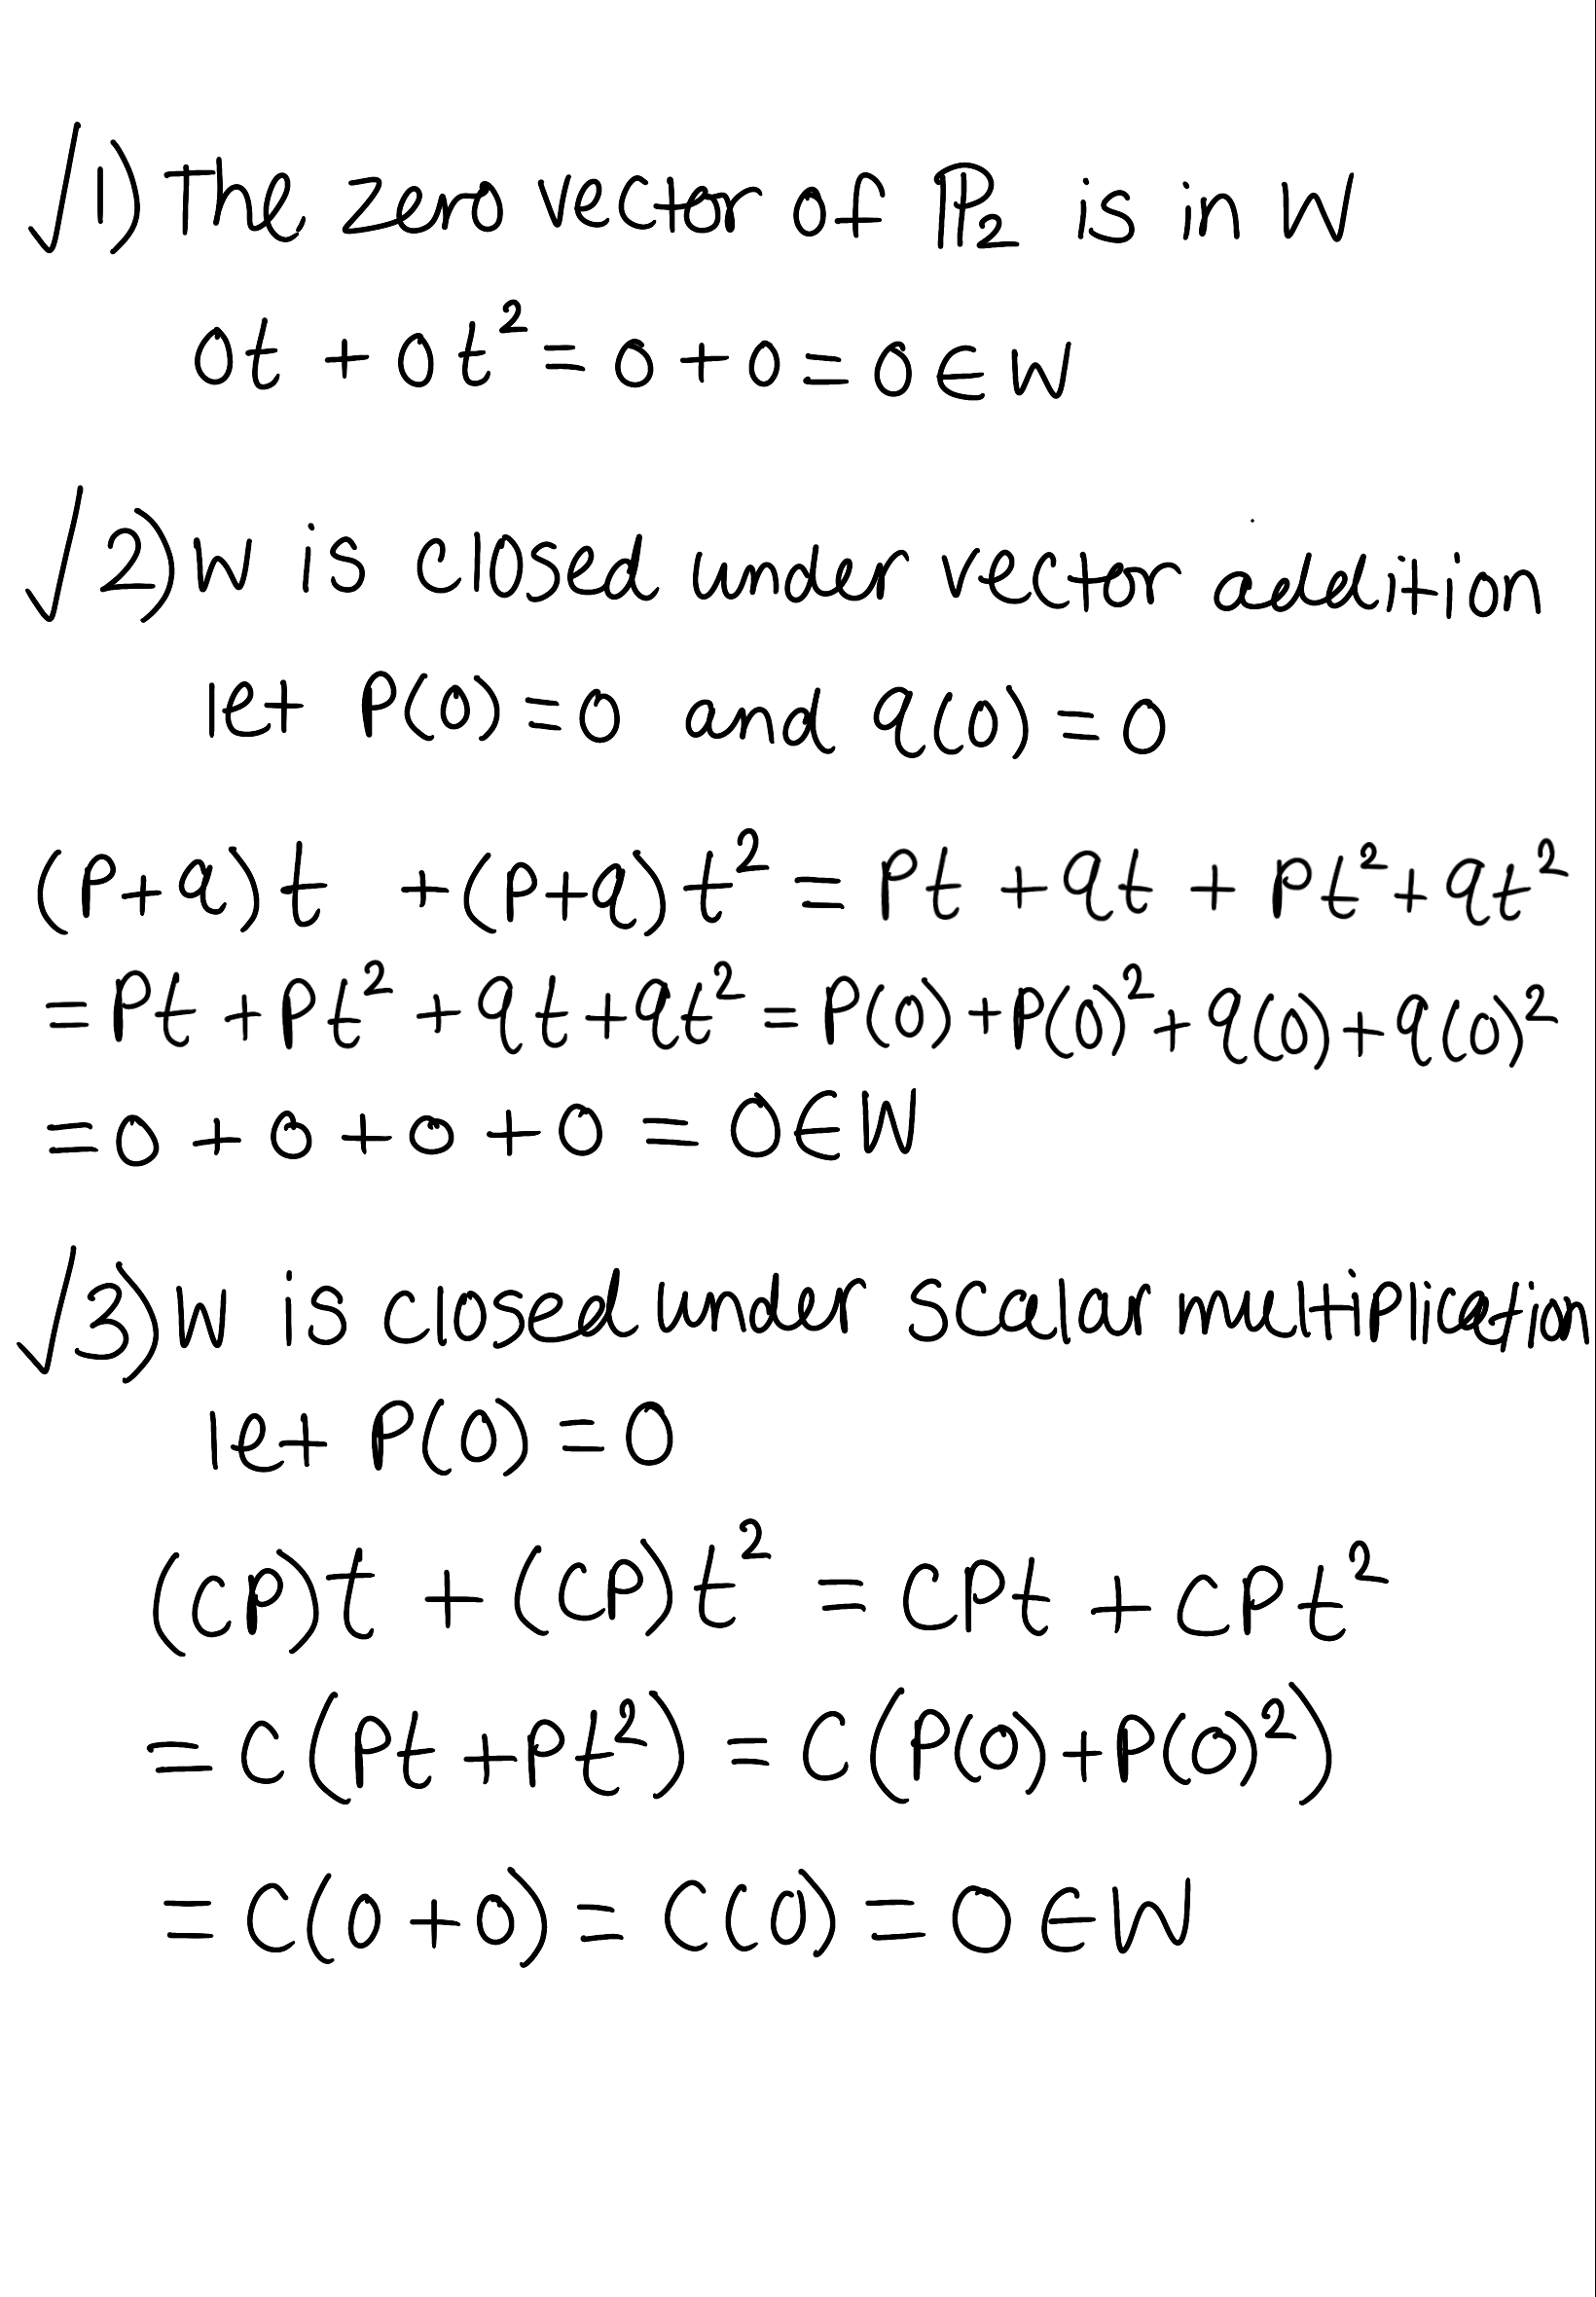 √1) The zero vector of ℙ₂ is in W
0t + 0t² = 0 + 0 = 0 ∈ W
√2) W is closed under vector addition
let P(0) = 0 and q(0) = 0
(P+q)t + (P+q)t² = Pt + qt + Pt² + qt²
= Pt + Pt² + qt + qt² = P(0) + P(0)² + q(0) + q(0)²
= 0 + 0 + 0 + 0 = 0 ∈ W
√3) W is closed under scalar multiplication
let P(0) = 0
(CP)t + (CP)t² = CPt + CPt²
= C(Pt + Pt²) = C(P(0) + P(0)²)
= C(0 + 0) = C(0) = 0 ∈ W